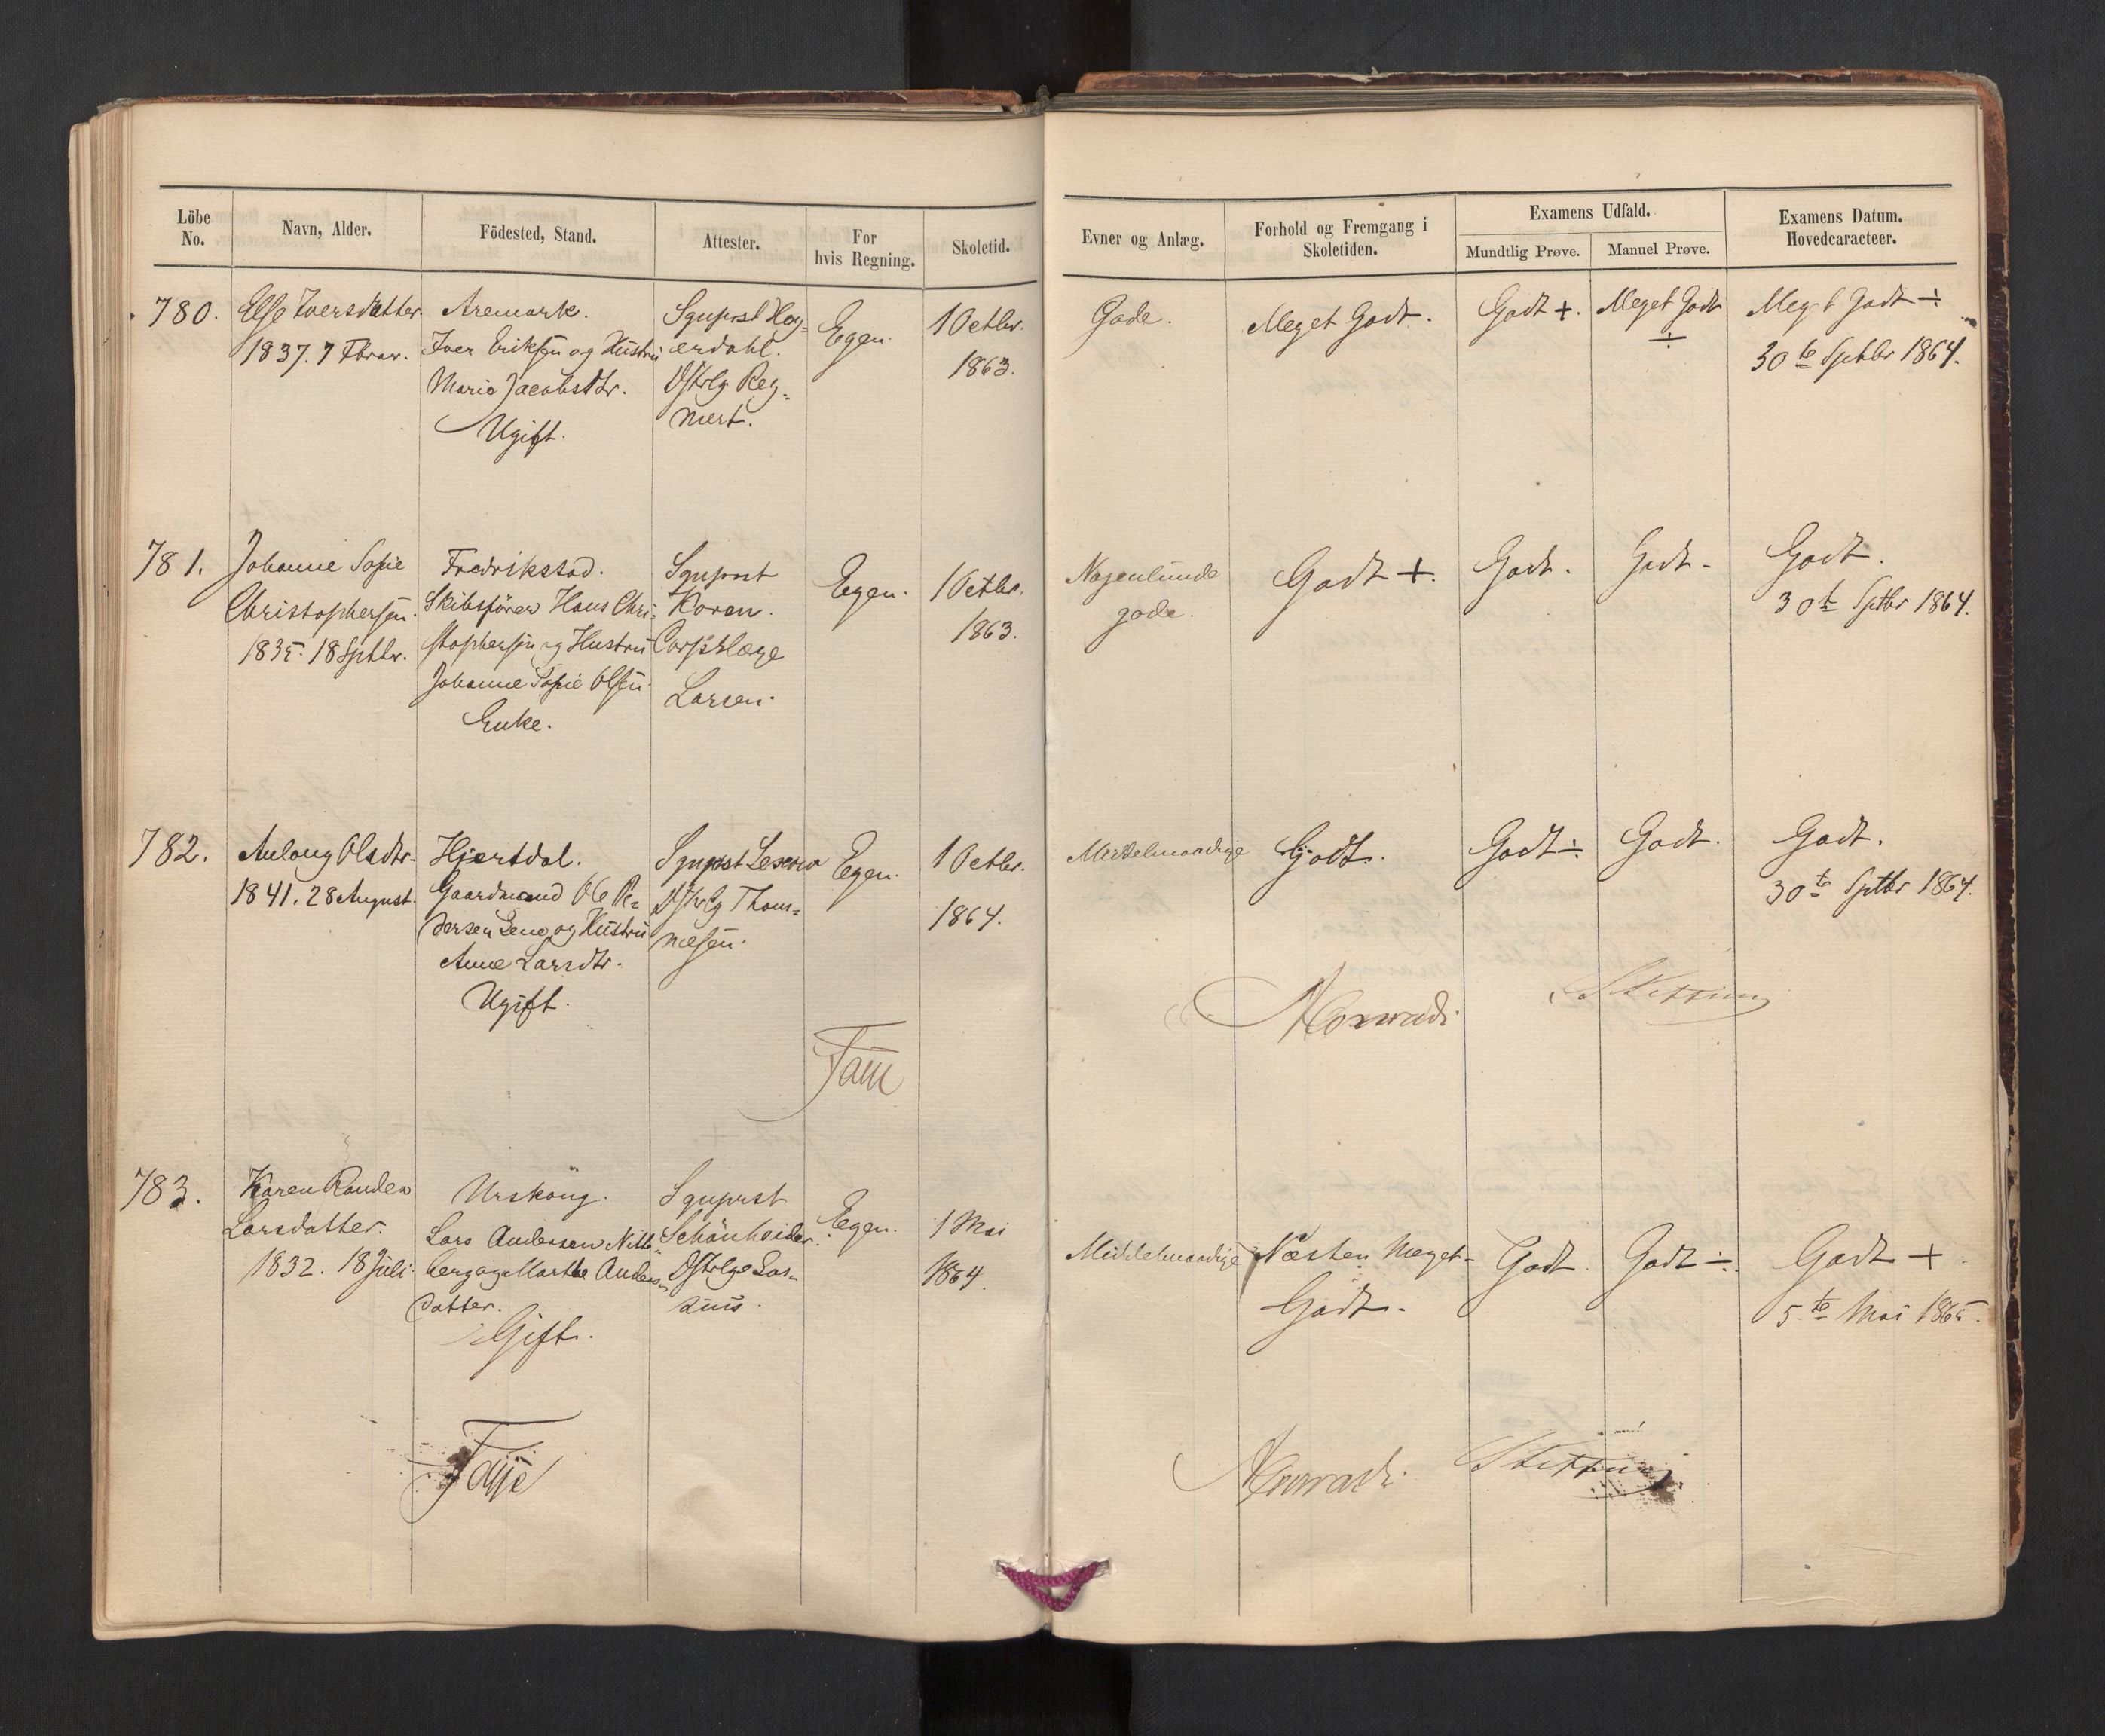 Löbe No.
Navn, Alder.
Födested, Stand.
Attester.
For hvis Regning.
Skoletid.
Evner og Anlæg.
Forhold og Fremgang i Skoletiden.
Examens Udfald.
Mundtlig Prøve.
Manuel Prøve.
Examens Datum.
Hovedcaracteer.
780.
Else Iversdatter
1837. 7 Fbrar.
Aremark.
Iver Eriksen og Hustru
Marie Jacobsdtr.
Ugift.
Sgnprst Hey=
erdahl.
Dstrlg Reg=
nert.
Egen.
1 Octbr.
1863.
Gode.
Meget Godt.
Godt +.
Meget Godt
÷
Meget Godt ÷
30te Sptbr 1864.
781.
Johanne Sofie
Christophersen.
1835. 18 Sptbr.
Fredrikstad.
Skibsförer Hans Chri=
stophersen og Hustru
Johanne Sofie Olsen.
Enke.
Sgnprst
Koren.
Corpslæge
Larsen.
Egen.
1 Octbr.
1863.
Nogenlunde
gode.
Godt +.
Godt.
Godt.
Godt.
30te Sptbr 1864.
782.
Aulong Olsdtr.
1841. 28 August.
Hjertdal.
Gaardmand Ole Pe=
dersen Lene og Hustru
Anne Larsdtr.
Ugift.
Sgnprst
Dstrlg Thom=
mesen.
Egen.
1 Octbr.
1864.
Middelmaadige
Godt.
Godt ÷.
Godt.
Godt.
30te Sptbr 1864.
Conradi.
Faye
783.
Karen Randea
Larsdatter.
1832. 18 Juli.
Urskoug.
Lars Andersen Nitte=
berg og Marthe Anders=
datter.
Gift.
Sgnprst
Schönheider.
Dstrlge Las=
sius.
Egen.
1 Mai
1864.
Middelmaadige
Næsten Meget
Godt.
Godt.
Godt ÷.
Godt +
5te Mai 1865.
Faye
Conradi.